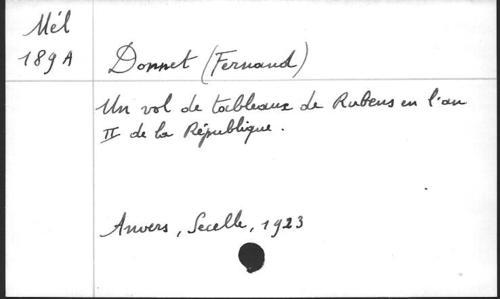 Mél
189 A
Donnet (Fernand)
Un vol de tableaux de Rubens en l'an
II de la République.
Anvers, Secelle, 1923